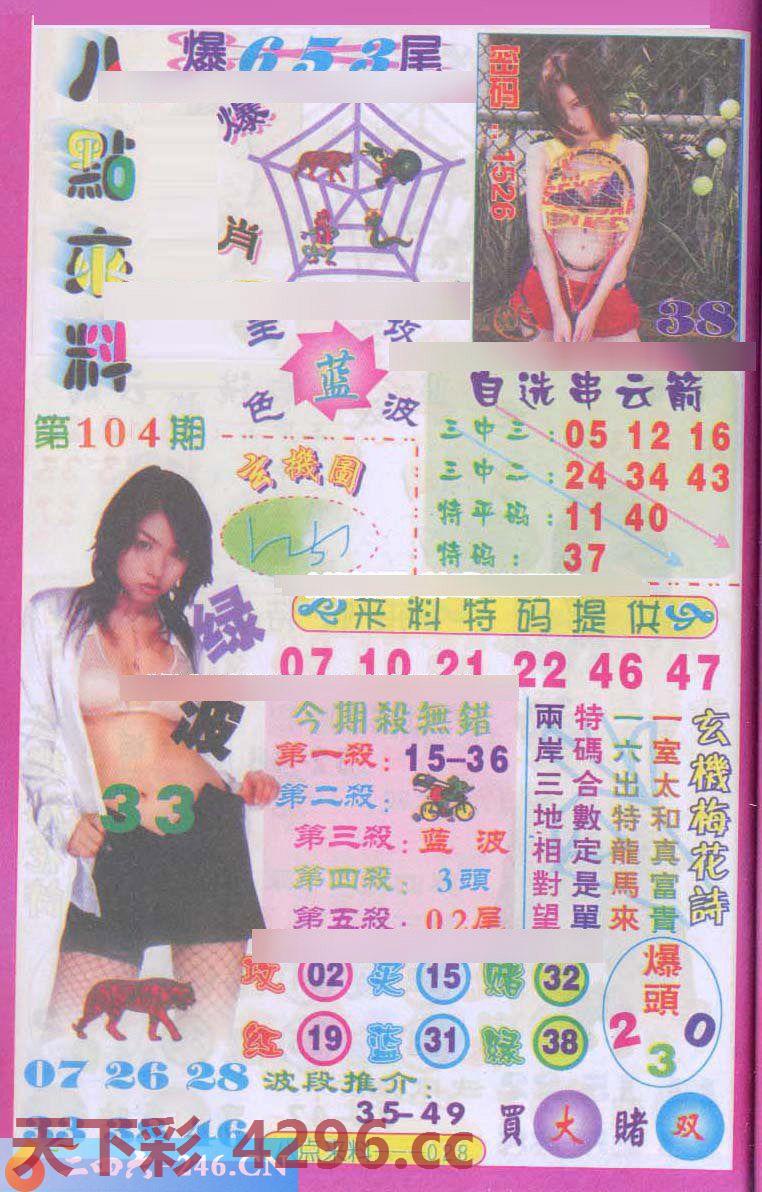 八點來料
爆653尾
爆肖
密码：1526
38
全攻
蓝
色波
第104期
玄機圖
自选串云箭
三中三：05 12 16
三中二：24 34 43
特平码：11 40
特码：37
绿波
33
来料特码提供
07 10 21 22 46 47
今期殺無錯
第一殺：15-36
第二殺：
第三殺：蓝波
第四殺：3頭
第五殺：02尾
玄機梅花詩
一室太和真富貴
一六出特龍馬來
特碼合數定是單
兩岸三地相對望
攻 02 买 15 赌 32
红 19 蓝 31 绿 38
爆頭
2 3 0
07 26 28
波段推介：
35-49
買大赌双
天下彩 4296.cc
246.CN